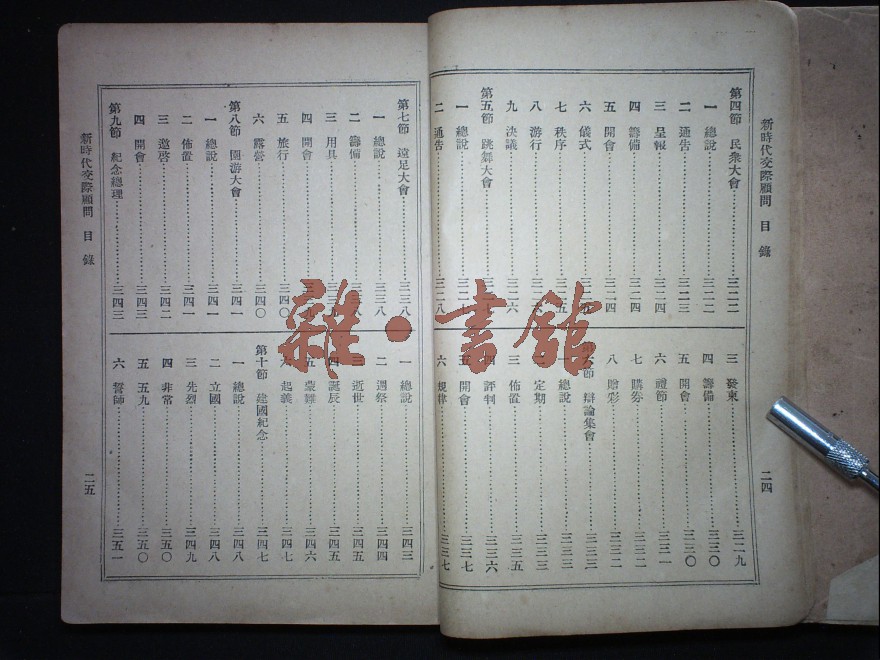 新時代交際顧問 目錄
二四
第四節 民衆大會……三二二
一 總說……三二二
二 通告……三二三
三 呈報……三二四
四 籌備……三二四
五 開會……三二四
六 儀式……
七 秩序……三二五
八 游行……
九 決議……三二六
第五節 跳舞大會……
一 總說……
二 通告……三二八
三 發柬……三二九
四 籌備……三三〇
五 開會……三三〇
六 禮節……三三一
七 購券……三三二
八 贈彩……三三二
節 辯論集會……三三三
總說……三三三
二 定期……三三三
三 佈置……三三五
評判……三三六
五 開會……三三七
六 規律……三三七
第七節 遠足大會……三三八
一 總說……三三八
二 籌備……
三 用具……
四 開會……
五 旅行……三四〇
六 露營……三四〇
第八節 園游大會……三四一
一 總說……三四一
二 佈置……三四一
三 邀啓……三四二
四 開會……三四三
第九節 紀念總理……三四三
一 總說……三四三
二 週祭……三四四
三 逝世……三四五
四 誕辰……三四五
五 蒙難……三四六
六 起義……三四七
第十節 建國紀念……三四七
一 總說……三四八
二 立國……三四八
三 先烈……三四九
四 非常……三五〇
五 五九……三五〇
六 誓師……三五一
新時代交際顧問 目錄
二五
雜·書館